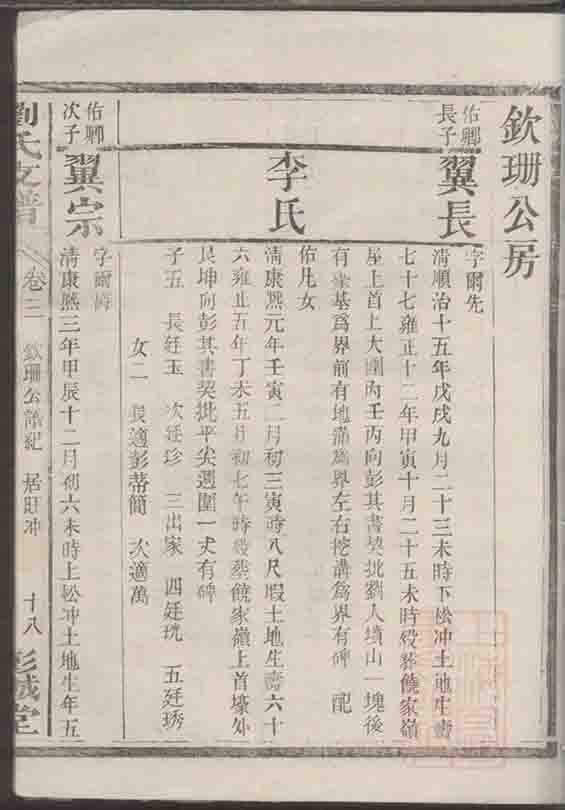 欽珊公房
佑卿
長子
翼長
字爾先
清順治十五年戊戌九月二十三未時下松冲土地生壽
七十七雍正十二年甲寅十月二十五未時歿葬饒家嶺
屋上首上大圍內壬丙向彭其書契批劉人墳山一塊後
有 基爲界前有地蒲爲界左右挖溝爲界有碑 配
佑 女
李氏
清康熙元年壬寅二月初三寅時八尺暇土地生壽六十
六雍正五年丁未五月初七午時歿葬饒家嶺上首壕外
艮坤向彭其書契批平尖週圍一丈有碑
子五 長廷玉 次廷珍 三出家 四廷珖 五廷琇
女二 長適彭蒂簡 次適萬
佑卿
次子
翼宗
字爾
清康熙三年甲辰十二月初六未時上松冲土地生年五
劉氏支譜 卷三 欽珊公 紀 居旺冲 十八 彭城堂